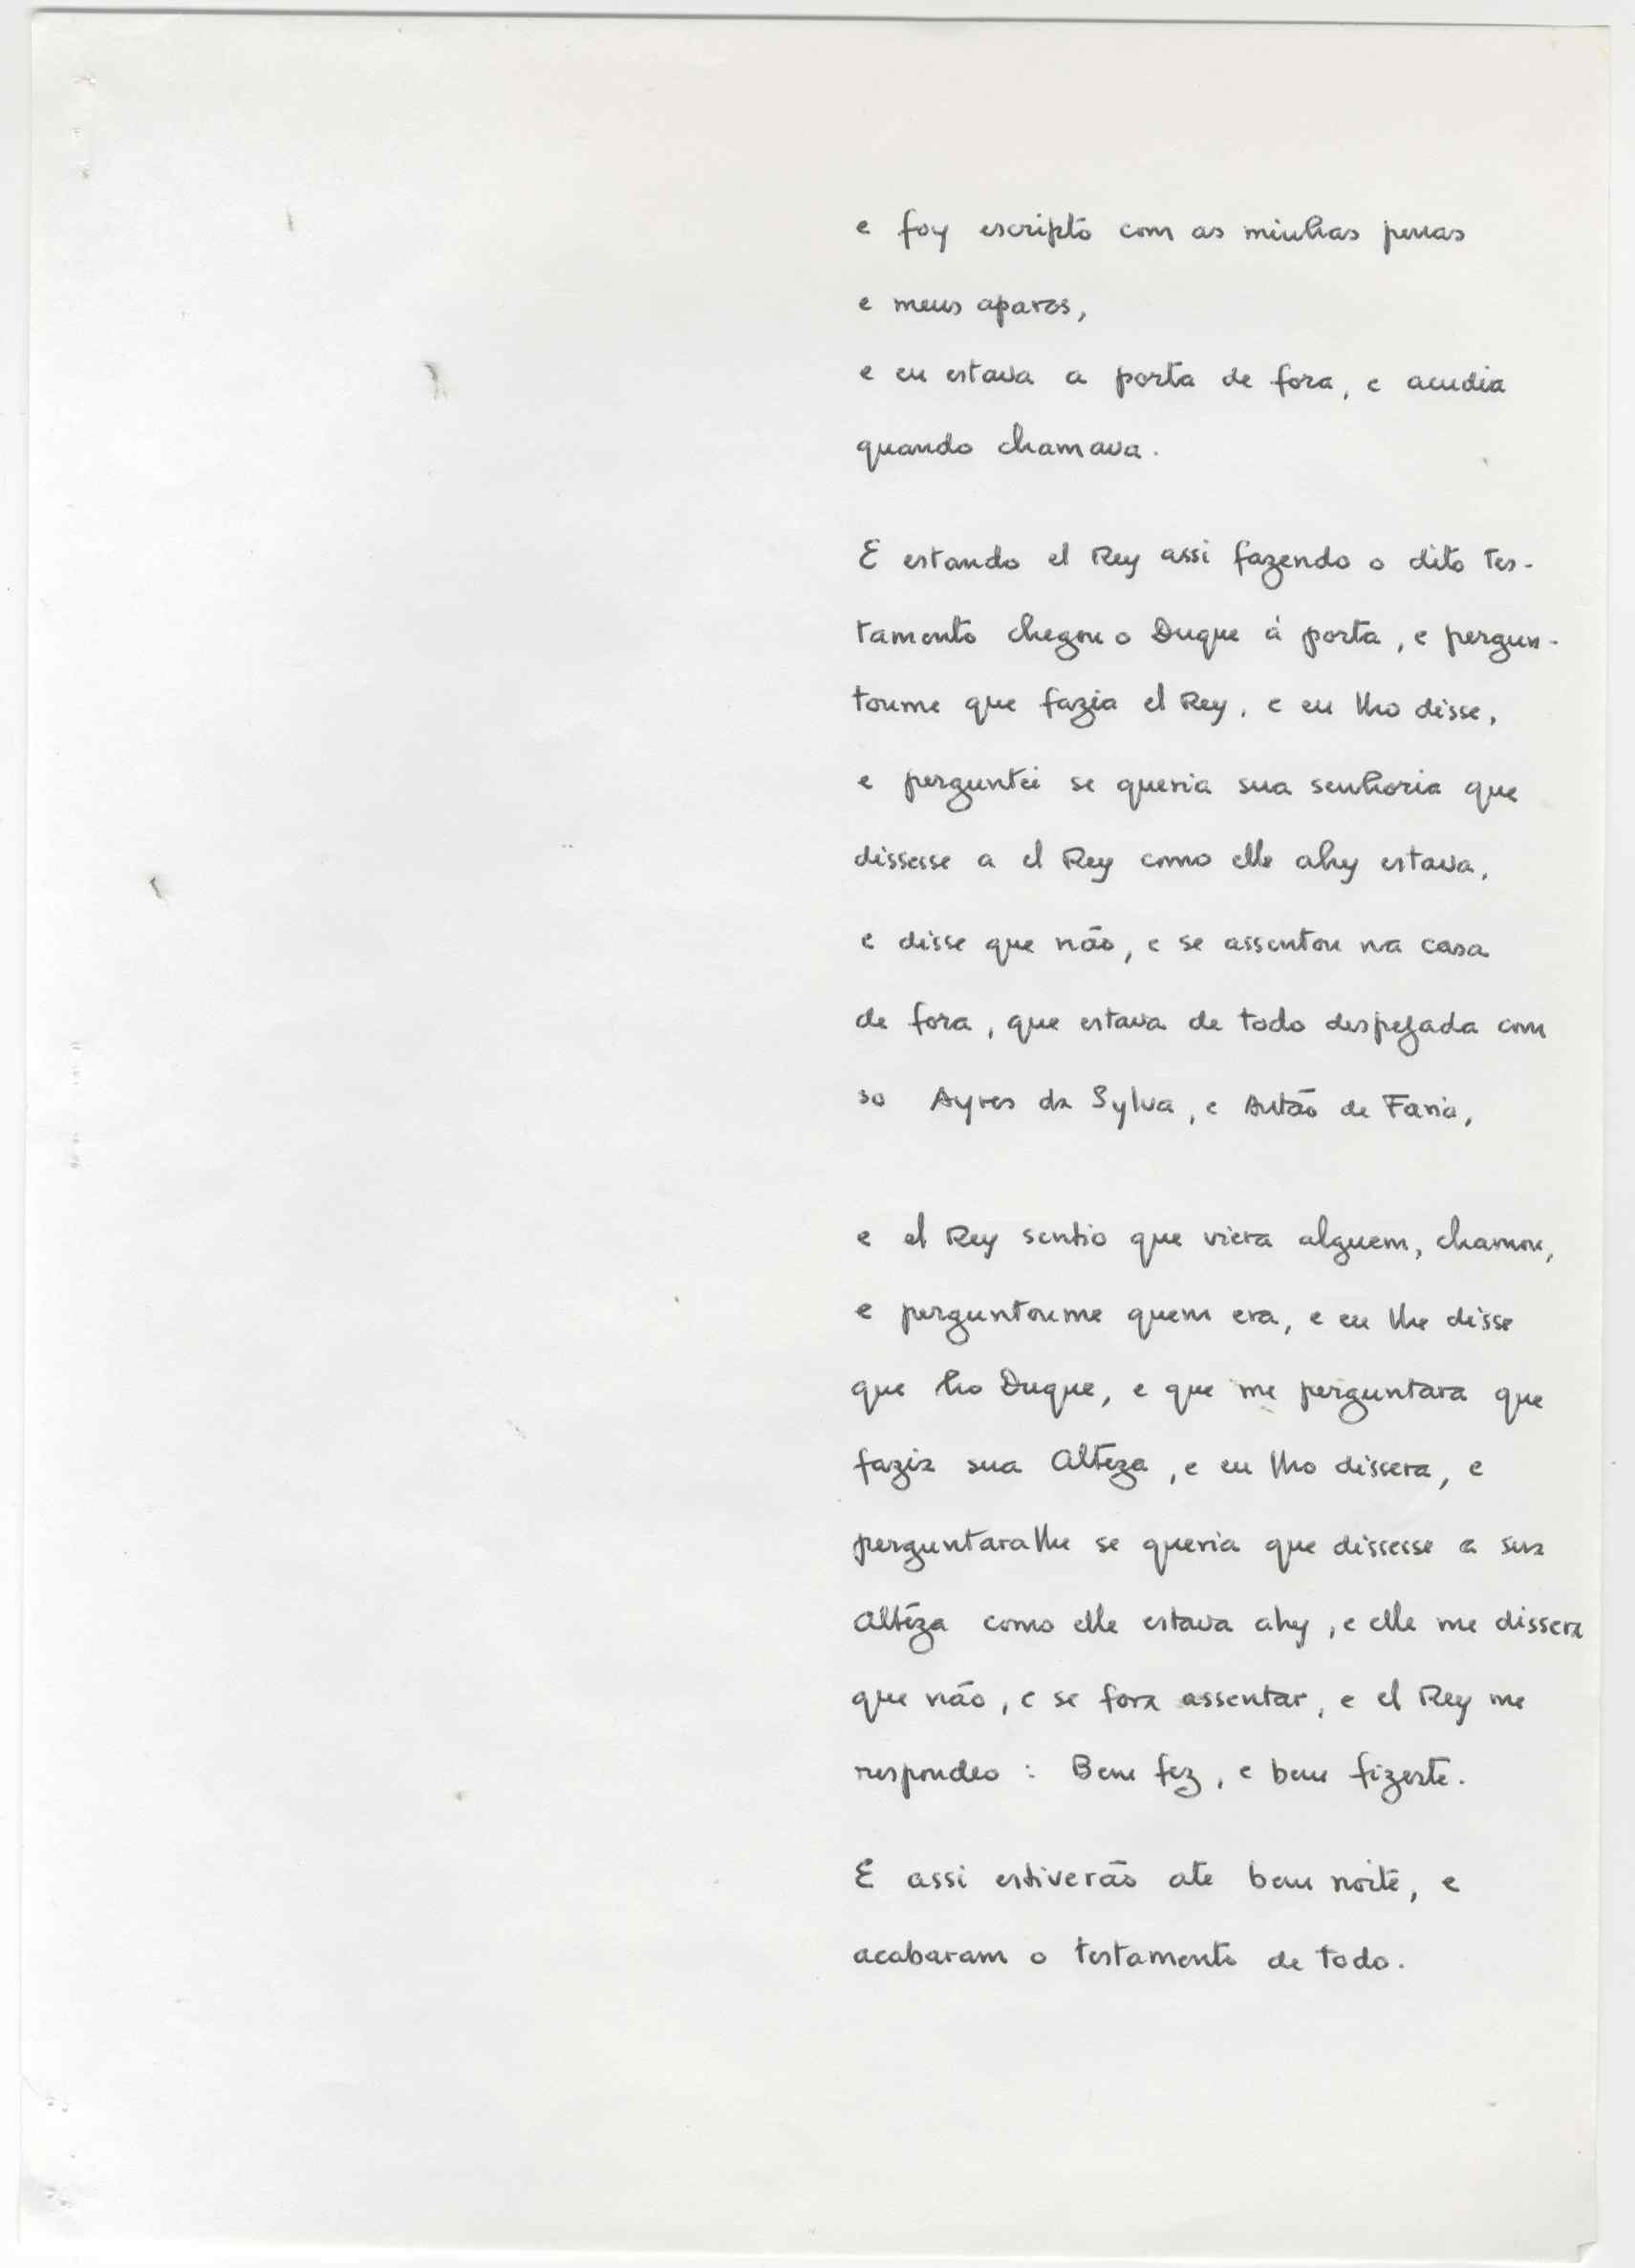 e foy escripto com as minhas penas
e meus aparos,
e eu estava a porta de fora, e acudia
quando chamava.
E estando el Rey assi fazendo o dito tes-
tamento chegou o Duque á porta, e pergun-
toume que fazia el Rey, e eu lho disse,
e perguntei se queria sua senhoria que
dissesse a el Rey como elle ahy estava,
e disse que não, e se assentou na casa
de fora, que estava de todo despejada com
so Ayres da Sylva, e Antão de Faria,
e el Rey sentio que viera alguem, chamou,
e perguntoume quem era, e eu lhe disse
que ho Duque, e que me perguntara que
fazia sua Alteza, e eu lho dissera, e
perguntaralhe se queria que dissesse a sua
Alteza como elle estava ahy, e elle me dissera
que não, e se fora assentar, e el Rey me
respondeo : Bem fez, e bem fizeste.
E assi estiverão ate bem noite, e
acabaram o testamento de todo.